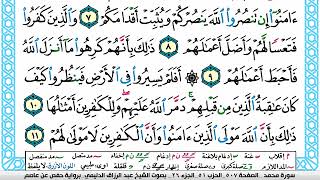 ءَامَنُوٓا۟ إِن تَنصُرُوا۟ ٱللَّهَ يَنصُرْكُمْ وَيُثَبِّتْ أَقْدَامَكُمْ ٧ وَٱلَّذِينَ كَفَرُوا۟
فَتَعْسًا لَّهُمْ وَأَضَلَّ أَعْمَٰلَهُمْ ٨ ذَٰلِكَ بِأَنَّهُمْ كَرِهُوا۟ مَآ أَنزَلَ ٱللَّهُ
فَأَحْبَطَ أَعْمَٰلَهُمْ ٩ أَفَلَمْ يَسِيرُوا۟ فِى ٱلْأَرْضِ فَيَنظُرُوا۟ كَيْفَ
كَانَ عَٰقِبَةُ ٱلَّذِينَ مِن قَبْلِهِمْ دَمَّرَ ٱللَّهُ عَلَيْهِمْ وَلِلْكَٰفِرِينَ أَمْثَٰلُهَا ١٠
ذَٰلِكَ بِأَنَّ ٱللَّهَ مَوْلَى ٱلَّذِينَ ءَامَنُوا۟ وَأَنَّ ٱلْكَٰفِرِينَ لَا مَوْلَىٰ لَهُمْ ١١
سورة محمد الصفحة ٥٠٧ الحزب ٥١ الجزء ٢٦ بصوت الشيخ عبد الرزاق الدليمي برواية حفص عن عاصم